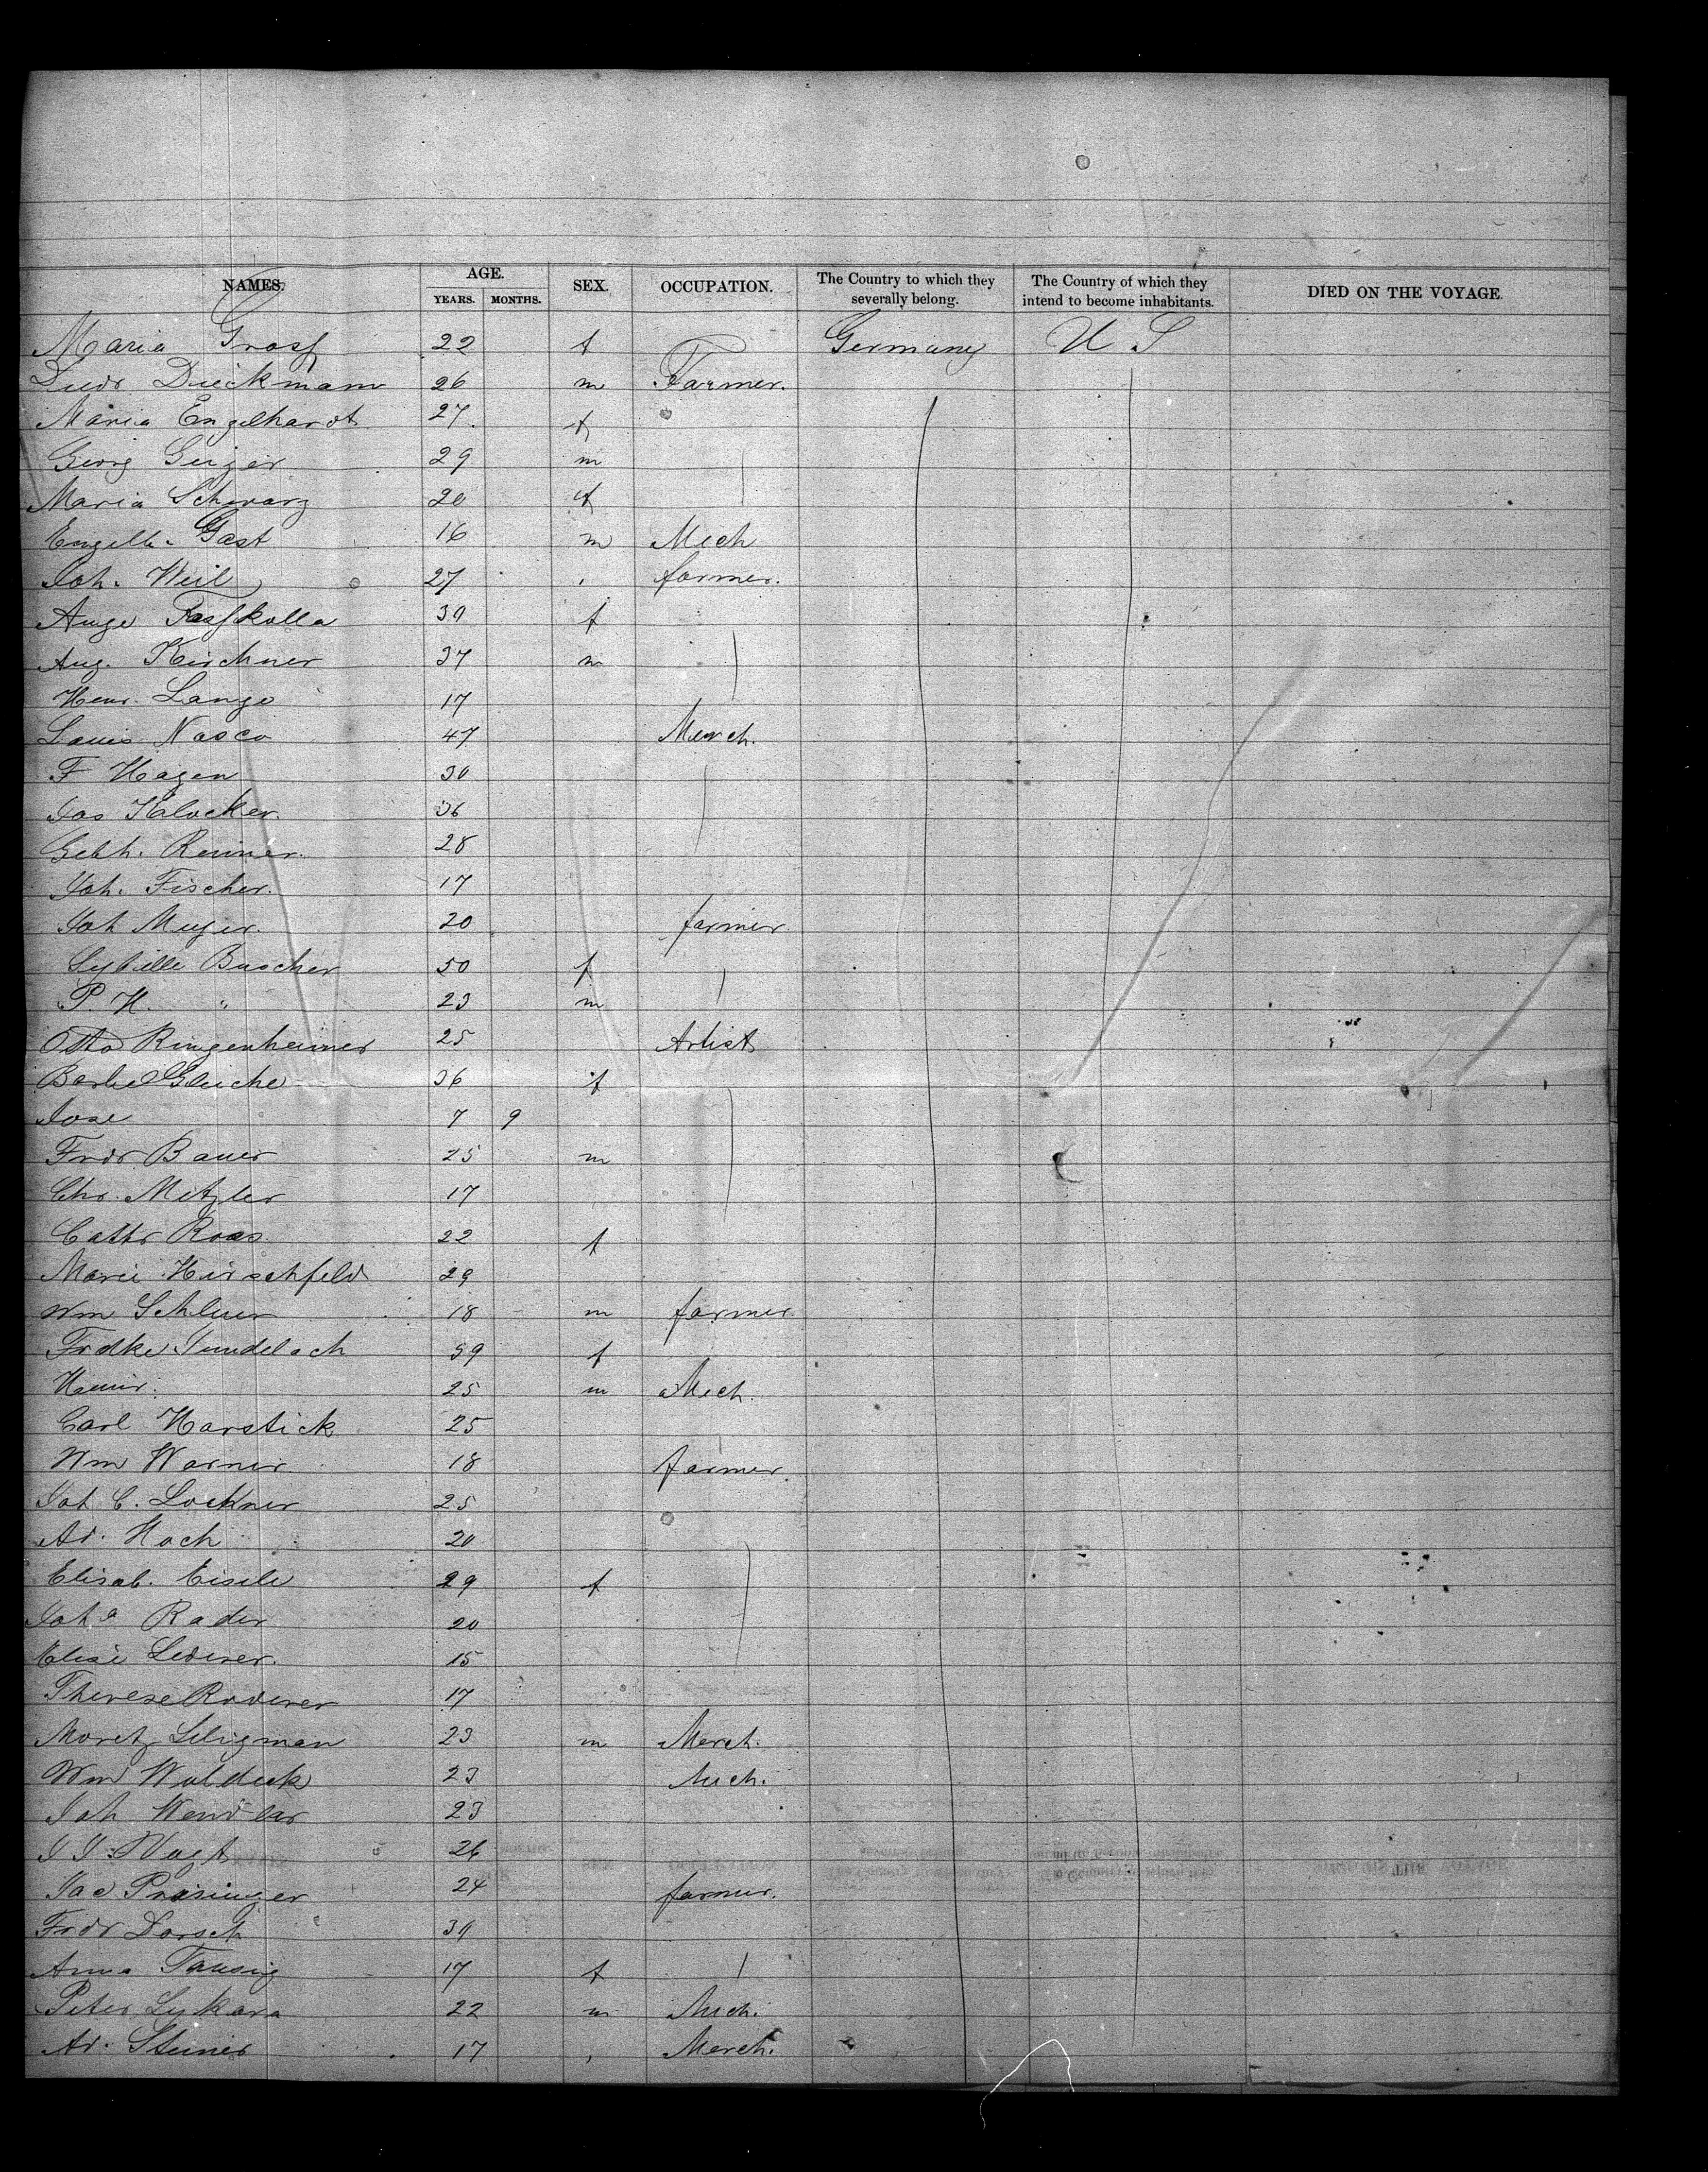 NAMES. AGE. YEARS. MONTHS. SEX. OCCUPATION. The Country to which they severally belong. The Country of which they intend to become inhabitants. DIED ON THE VOYAGE.
Maria Gross 22 f Germany U S
Ludr Dieckmann 26 m Farmer.
Maria Engelhardt 27 f
Georg Geiger 29 m
Maria Schwarz 20 f
Engelb. Gast 16 m Mech
Joh. Weil 27 farmer.
30 f
Aug. Kirchner 37 m
Henr. Lange 17
Louis Nasco 47 Merch.
F Hagen 30
Jos Klocker. 36
Gebh. Renner. 28
Joh. Fischer. 17
Joh Meyer. 20 farmer
Sybille Buscher 50 f
P. H. " 23 m
Otto Ringenheimer 25 Artist
Gleiche 36 f
Jose 7 9
Fredr Bauer 25 m
Chr. Metzler 17
Cathr Roas 22 f
Marie Hirschfeld 29
Wm 18 m farmer
Frdke Gundelach 59 f
25 m Mech.
Carl Harstick 25
Wm Warner 18 farmer.
Joh C. Lockner 25
Ad. Hoch 20
Elisab. Eisele 29 f
Joh a Rader 20
Elise Lederer. 15
Therese Roderer 17
Moretz Seligman 23 m Merch.
Wm Waldeck 23 Mech.
Joh Wendler 23
J J. Vogt 26
Jac 24 farmer.
Fredr Dorsch 30
Anna Tausig 17 f
Peter Lykara 22 m Mech.
Ad. Steiner 17 Merch.